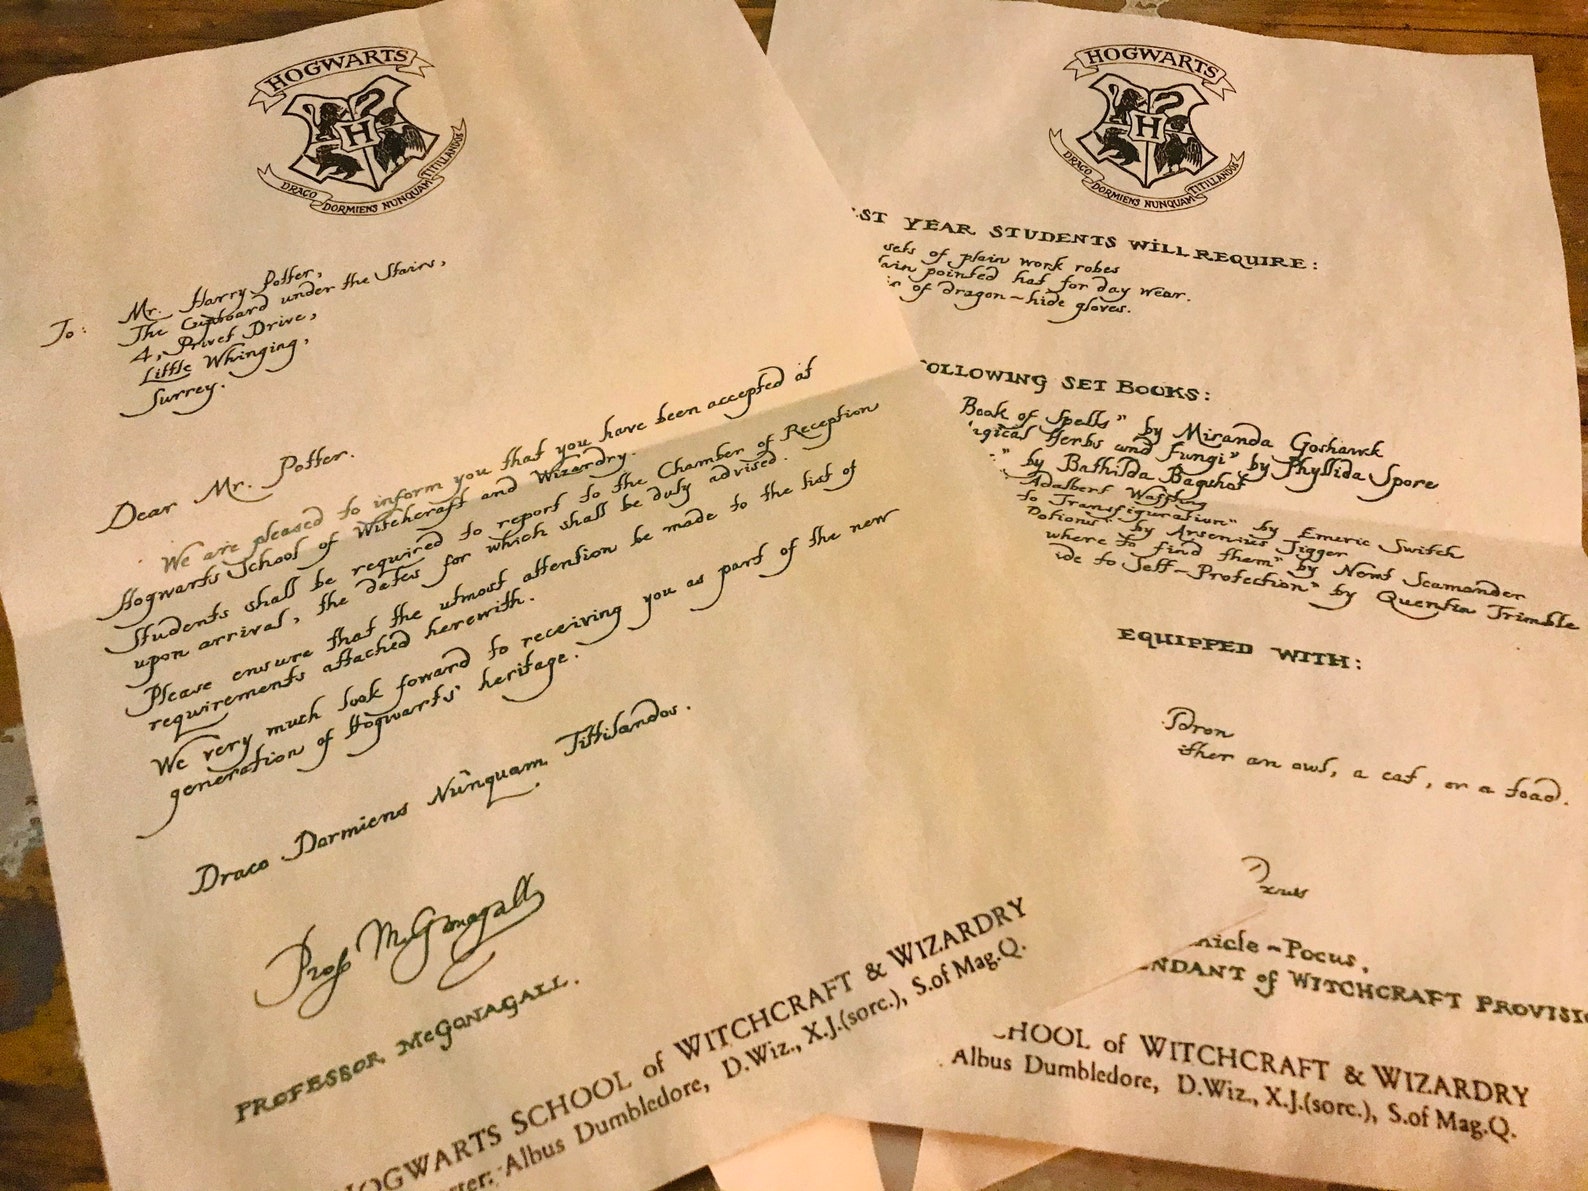 HOGWARTS
H
DRACO DORMIENS NUNQUAM TITILLANDUS
To: Mr. Harry Potter,
The Cupboard under the Stairs,
4, Privet Drive,
Little Whinging,
Surrey.
Dear Mr. Potter.
We are pleased to inform you that you have been accepted at
Hogwarts School of Witchcraft and Wizardry.
Students shall be required to report to the Chamber of Reception
upon arrival, the dates for which shall be duly advised.
Please ensure that the utmost attention be made to the list of
requirements attached herewith.
We very much look foward to receiving you as part of the new
generation of Hogwarts' heritage.
Draco Dormiens Nunquam Tittilandus.
Prof McGonagall
PROFESSOR McGONAGALL.
HOGWARTS SCHOOL of WITCHCRAFT & WIZARDRY
Albus Dumbledore, D.Wiz., X.J.(sorc.), S.of Mag.Q.
HOGWARTS
H
DRACO DORMIENS NUNQUAM TITILLANDUS
ST YEAR STUDENTS WILL REQUIRE:
sets of plain work robes
ain pointed hat for day wear.
of dragon-hide gloves.
OLLOWING SET BOOKS:
Book of Spells" by Miranda Goshawk
gical Herbs and Fungi" by Phyllida Spore
" by Bathilda Bagshot
Adalbert Waffling
to Transfiguration" by Emeric Switch
Potions" by Arsenius Jigger
where to find them" by Newt Scamander
ide to Self-Protection" by Quentin Trimble
EQUIPPED WITH:
ldron
ither an owl, a cat, or a toad.
icle-Pocus,
NDANT of WITCHCRAFT PROVISIO
HOOL of WITCHCRAFT & WIZARDRY
Albus Dumbledore, D.Wiz., X.J.(sorc.), S.of Mag.Q.